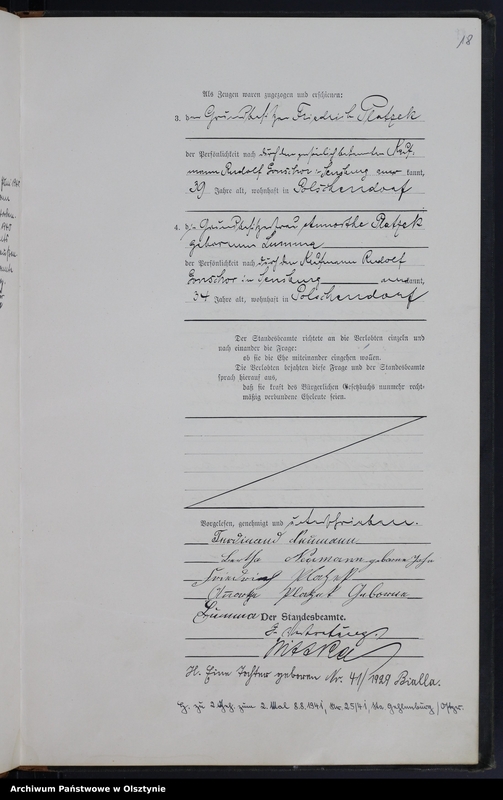 18
Als Zeugen waren zugezogen und erschienen:
3. der Grundbesitzer Friedrich Platzek
der Persönlichkeit nach durch den persönlich bekannten Kauf-
mann Rudolf Gonschor in Sensburg aner kannt,
39 Jahre alt, wohnhaft in Polschendorf
4. die Grundbesitzerfrau Annorthe Platzek
geborene Summa
der Persönlichkeit nach durch den Kaufmann Rudolf
Gonschor in Sensburg anerkannt,
34 Jahre alt, wohnhaft in Polschendorf
Der Standesbeamte richtete an die Verlobten einzeln und
nach einander die Frage:
ob sie die Ehe miteinander eingehen wollen.
Die Verlobten bejahten diese Frage und der Standesbeamte
sprach hierauf aus,
daß sie kraft des Bürgerlichen Gesetzbuchs nunmehr recht-
mäßig verbundene Eheleute seien.
Vorgelesen, genehmigt und unterschrieben.
Ferdinand Neumann
Bertha Neumann geborne
Friedrich Platzek
Platzek Geborene
Summa Der Standesbeamte.
In Vertretung.
H. Eine Tochter geboren Nr. 41/1929 Bialla.
H. zu 2 Gesch. zum 2. Mal 8.8.1941, Nr. 25/41, Sta Gehlenburg / Ostpr.
Archiwum Państwowe w Olsztynie